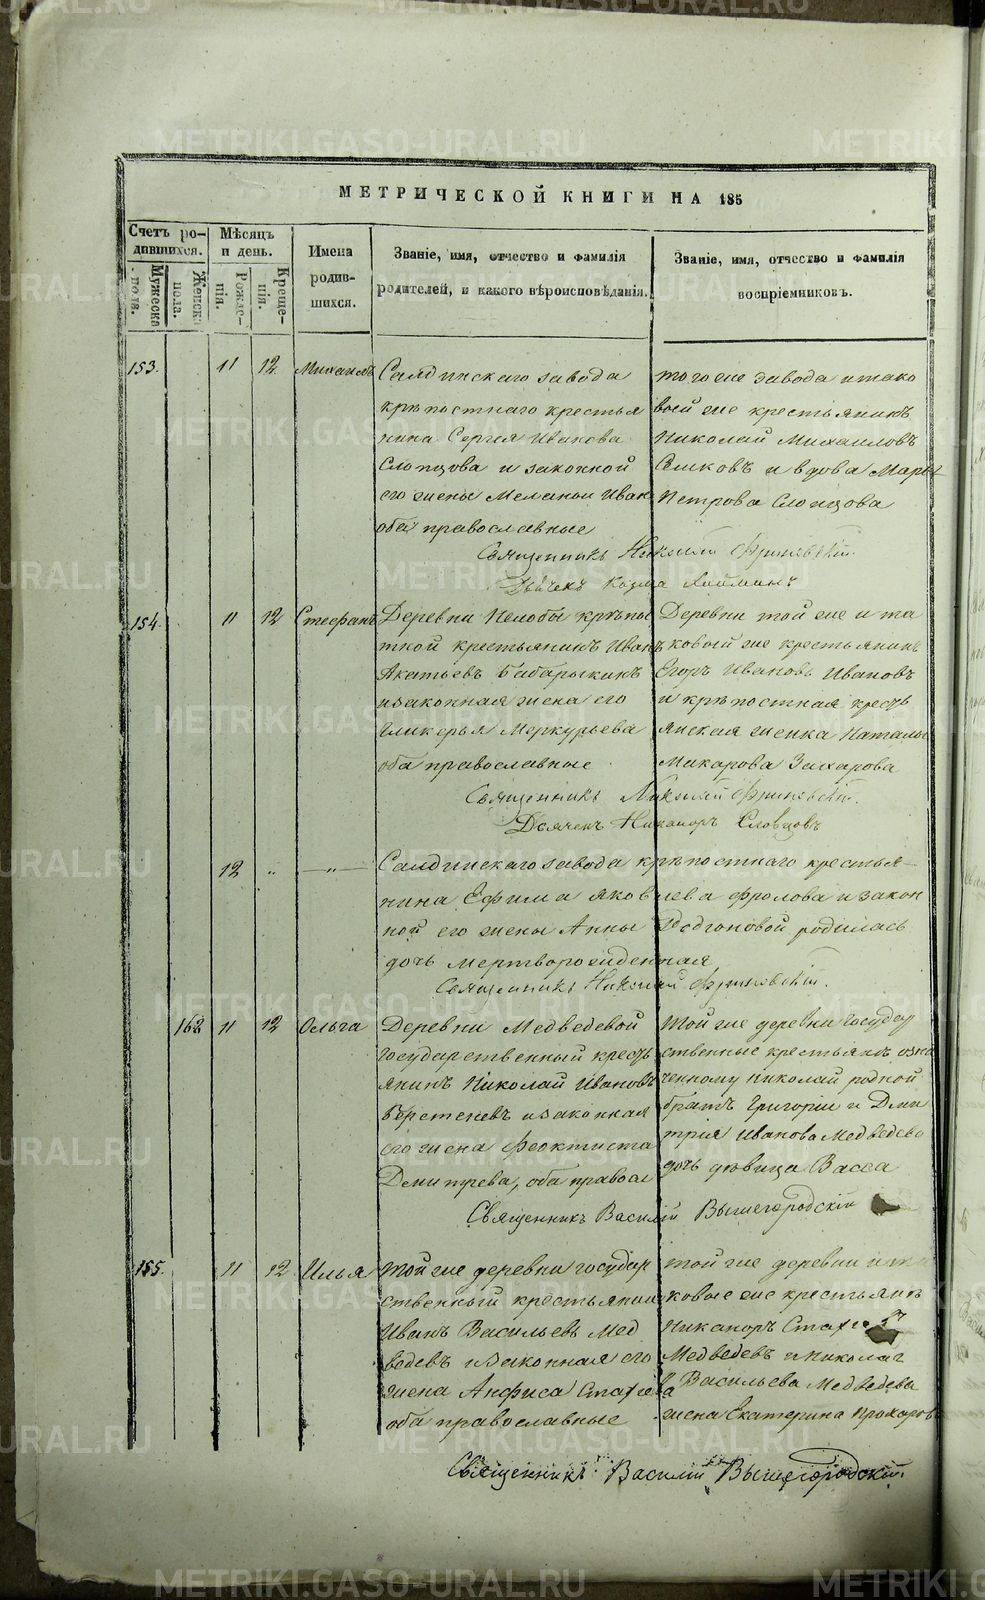 МЕТРИЧЕСКОЙ КНИГИ НА 185
Счетъ ро-
дившихся.
Мужеска
пола.
Женска
пола.
Мѣсяцъ
и день.
Рожде-
нія.
Креще-
нія.
Имена
родив-
шихся.
Званіе, имя, отчество и фамилія
родителей, и какого вѣроисповѣданія.
Званіе, имя, отчество и фамилія
воспріемниковъ.
153. 11 12 Михаилъ
Салдинскаго завода
крѣпостнаго крестья
нина Сергея Иванова
Слопцова и законной
его жены Меланьи Иван
оба православные
того же завода и тако
вой же крестьянинъ
Николай Михаиловъ
и вдова Марья
Петрова Слопцова
Священникъ Николай
Дьячекъ Козма
154. 11 12 Стефанъ
Деревни Нелобы крѣпос
тной крестьянинъ Иванъ
Акатьевъ Бабарыкинъ
и законная жена его
Гликерья Меркурьева
оба православные
Деревни той же и та
ковый же крестьянинъ
Егоръ Ивановъ Ивановъ
и крѣпостная кресть
янская женка Наталья
Макарова Захарова
Священникъ Николай
Дьячекъ Никаноръ Словцовъ
12 " — " —
Салдинскаго завода крѣпостнаго крестья-
нина Ефима Яковлева Фролова и закон
ной его жены Анны Родіоновой родилась
дочь мертворожденная
Священникъ Николай
162 11 12 Ольга
Деревни Медведевой
государственный кресть
янинъ Николай Ивановъ
Веретеневъ и законная
его жена Феоктиста
Дмитрева, оба правосл
Той же деревни государ
ственные крестьянъ озна
ченному Николай родной
братъ Григорій и Дми
трія Иванова Медведева
дочь дѣвица Васса
Священникъ Василій Вышегородскій
155. 11 12 Илья
Той же деревни государ
ственный крестьянин
Иванъ Васильевъ Мед
ведевъ и законная его
жена Анфиса Стахиева
оба православные
той же деревни и та
ковые же крестьянъ
Никаноръ
Медведевъ и Николая
Васильева Медведева
жена Екатерина Прохоров
Священникъ Василій Вышегородскій
METRIKI.GASO-URAL.RU